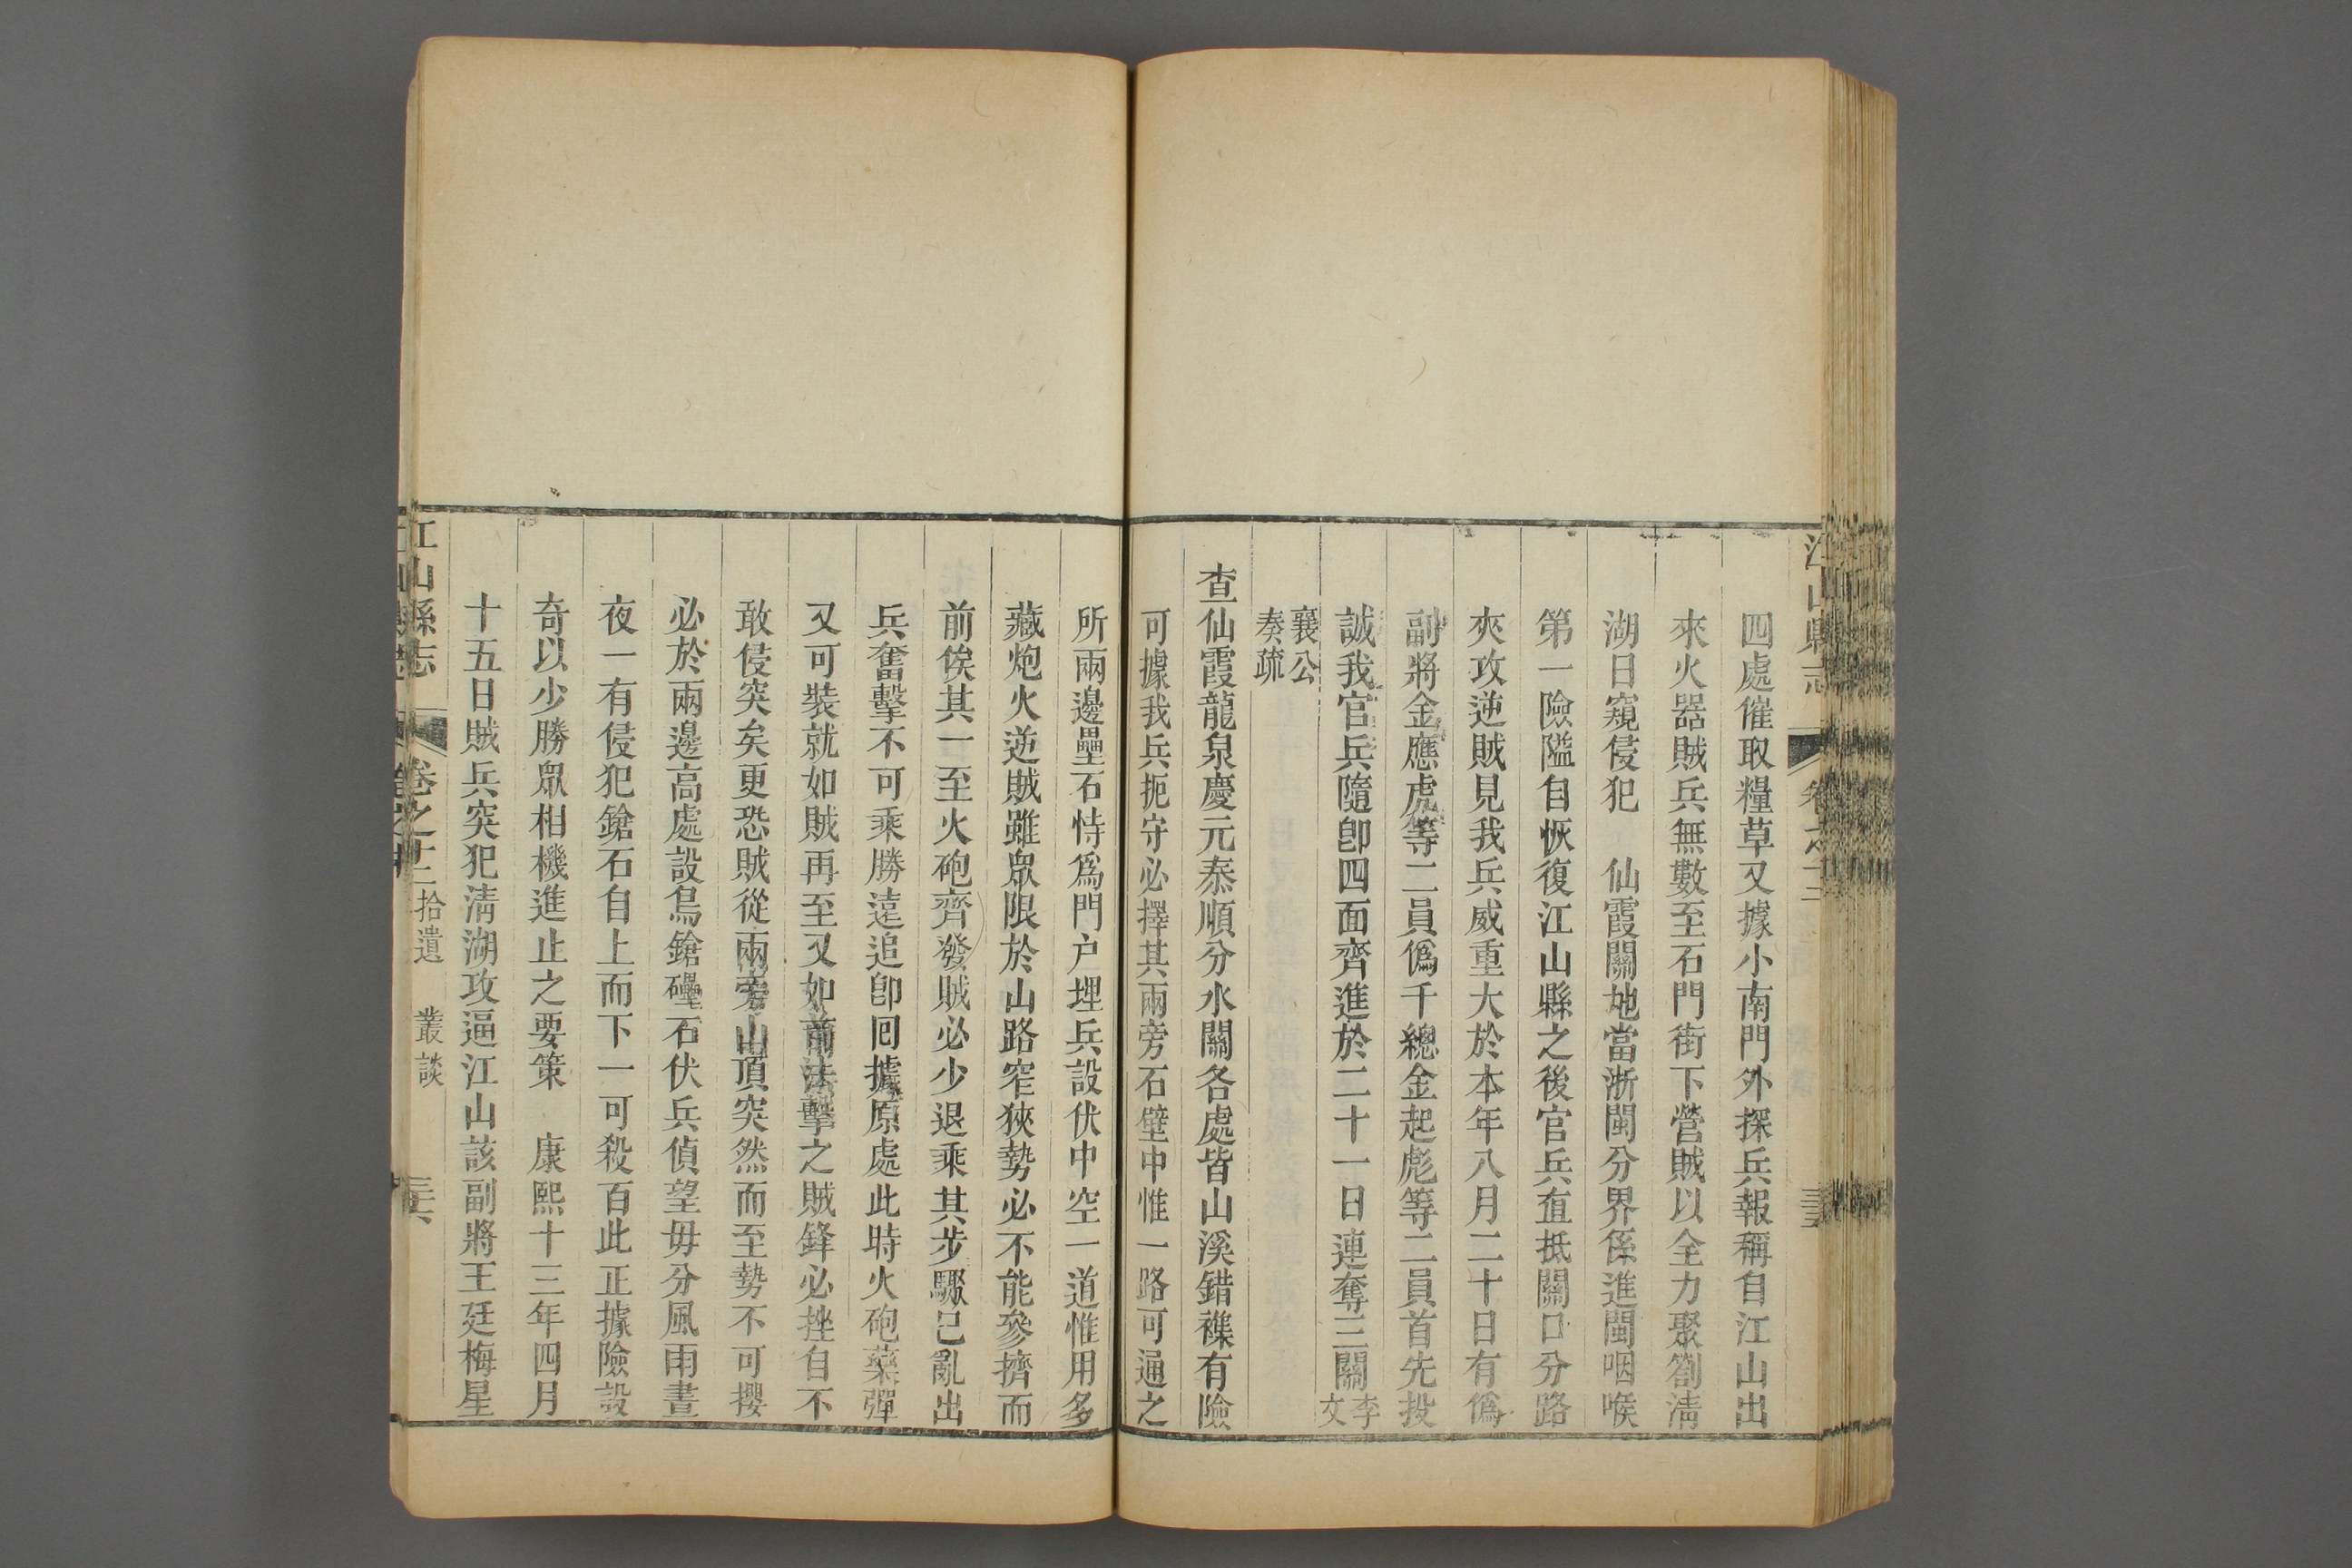 江山縣志
四處催取糧草又據小南門外探兵報稱自江山出
來火器賊兵無數至石門街下營賊以全力聚劄淸
湖日窺侵犯　仙霞關地當浙閩分界係進閩咽喉
第一險隘自恢復江山縣之後官兵直抵關口分路
夾攻逆賊見我兵威重大於本年八月二十日有僞
副將金應虎等二員僞千總金起彪等二員首先投
誠我官兵隨卽四面齊進於二十一日連奪三關李文
襄公奏疏
查仙霞龍泉慶元泰順分水關各處皆山溪錯襍有險
可據我兵扼守必擇其兩旁石壁中惟一路可通之
所兩邊壘石恃爲門户埋兵設伏中空一道惟用多
藏炮火逆賊雖眾限於山路窄狹勢必不能參擠而
前俟其一至火砲齊發賊必少退乘其步驟已亂出
兵奮擊不可乘勝遠追卽囘據原處此時火砲藥彈
又可裝就如賊再至又如前法擊之賊鋒必挫自不
敢侵突矣更恐賊從兩旁山頂突然而至勢不可攖
必於兩邊高處設鳥鎗礧石伏兵偵望毋分風雨晝
夜一有侵犯鎗石自上而下一可殺百此正據險設
奇以少勝眾相機進止之要策　康熙十三年四月
十五日賊兵突犯淸湖攻逼江山該副將王廷梅星
江山縣志　卷之十二　拾遺　叢談